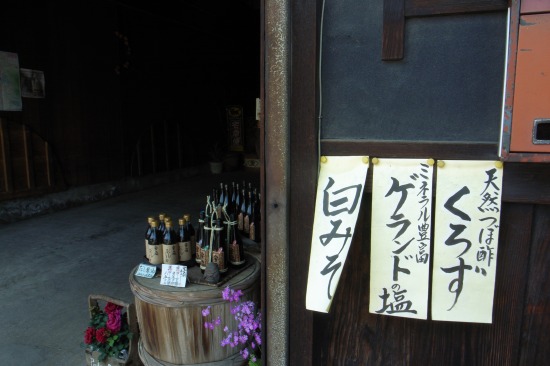 天然つぼ酢
くろず
ミネラル豊富
ゲランドの塩
白みそ